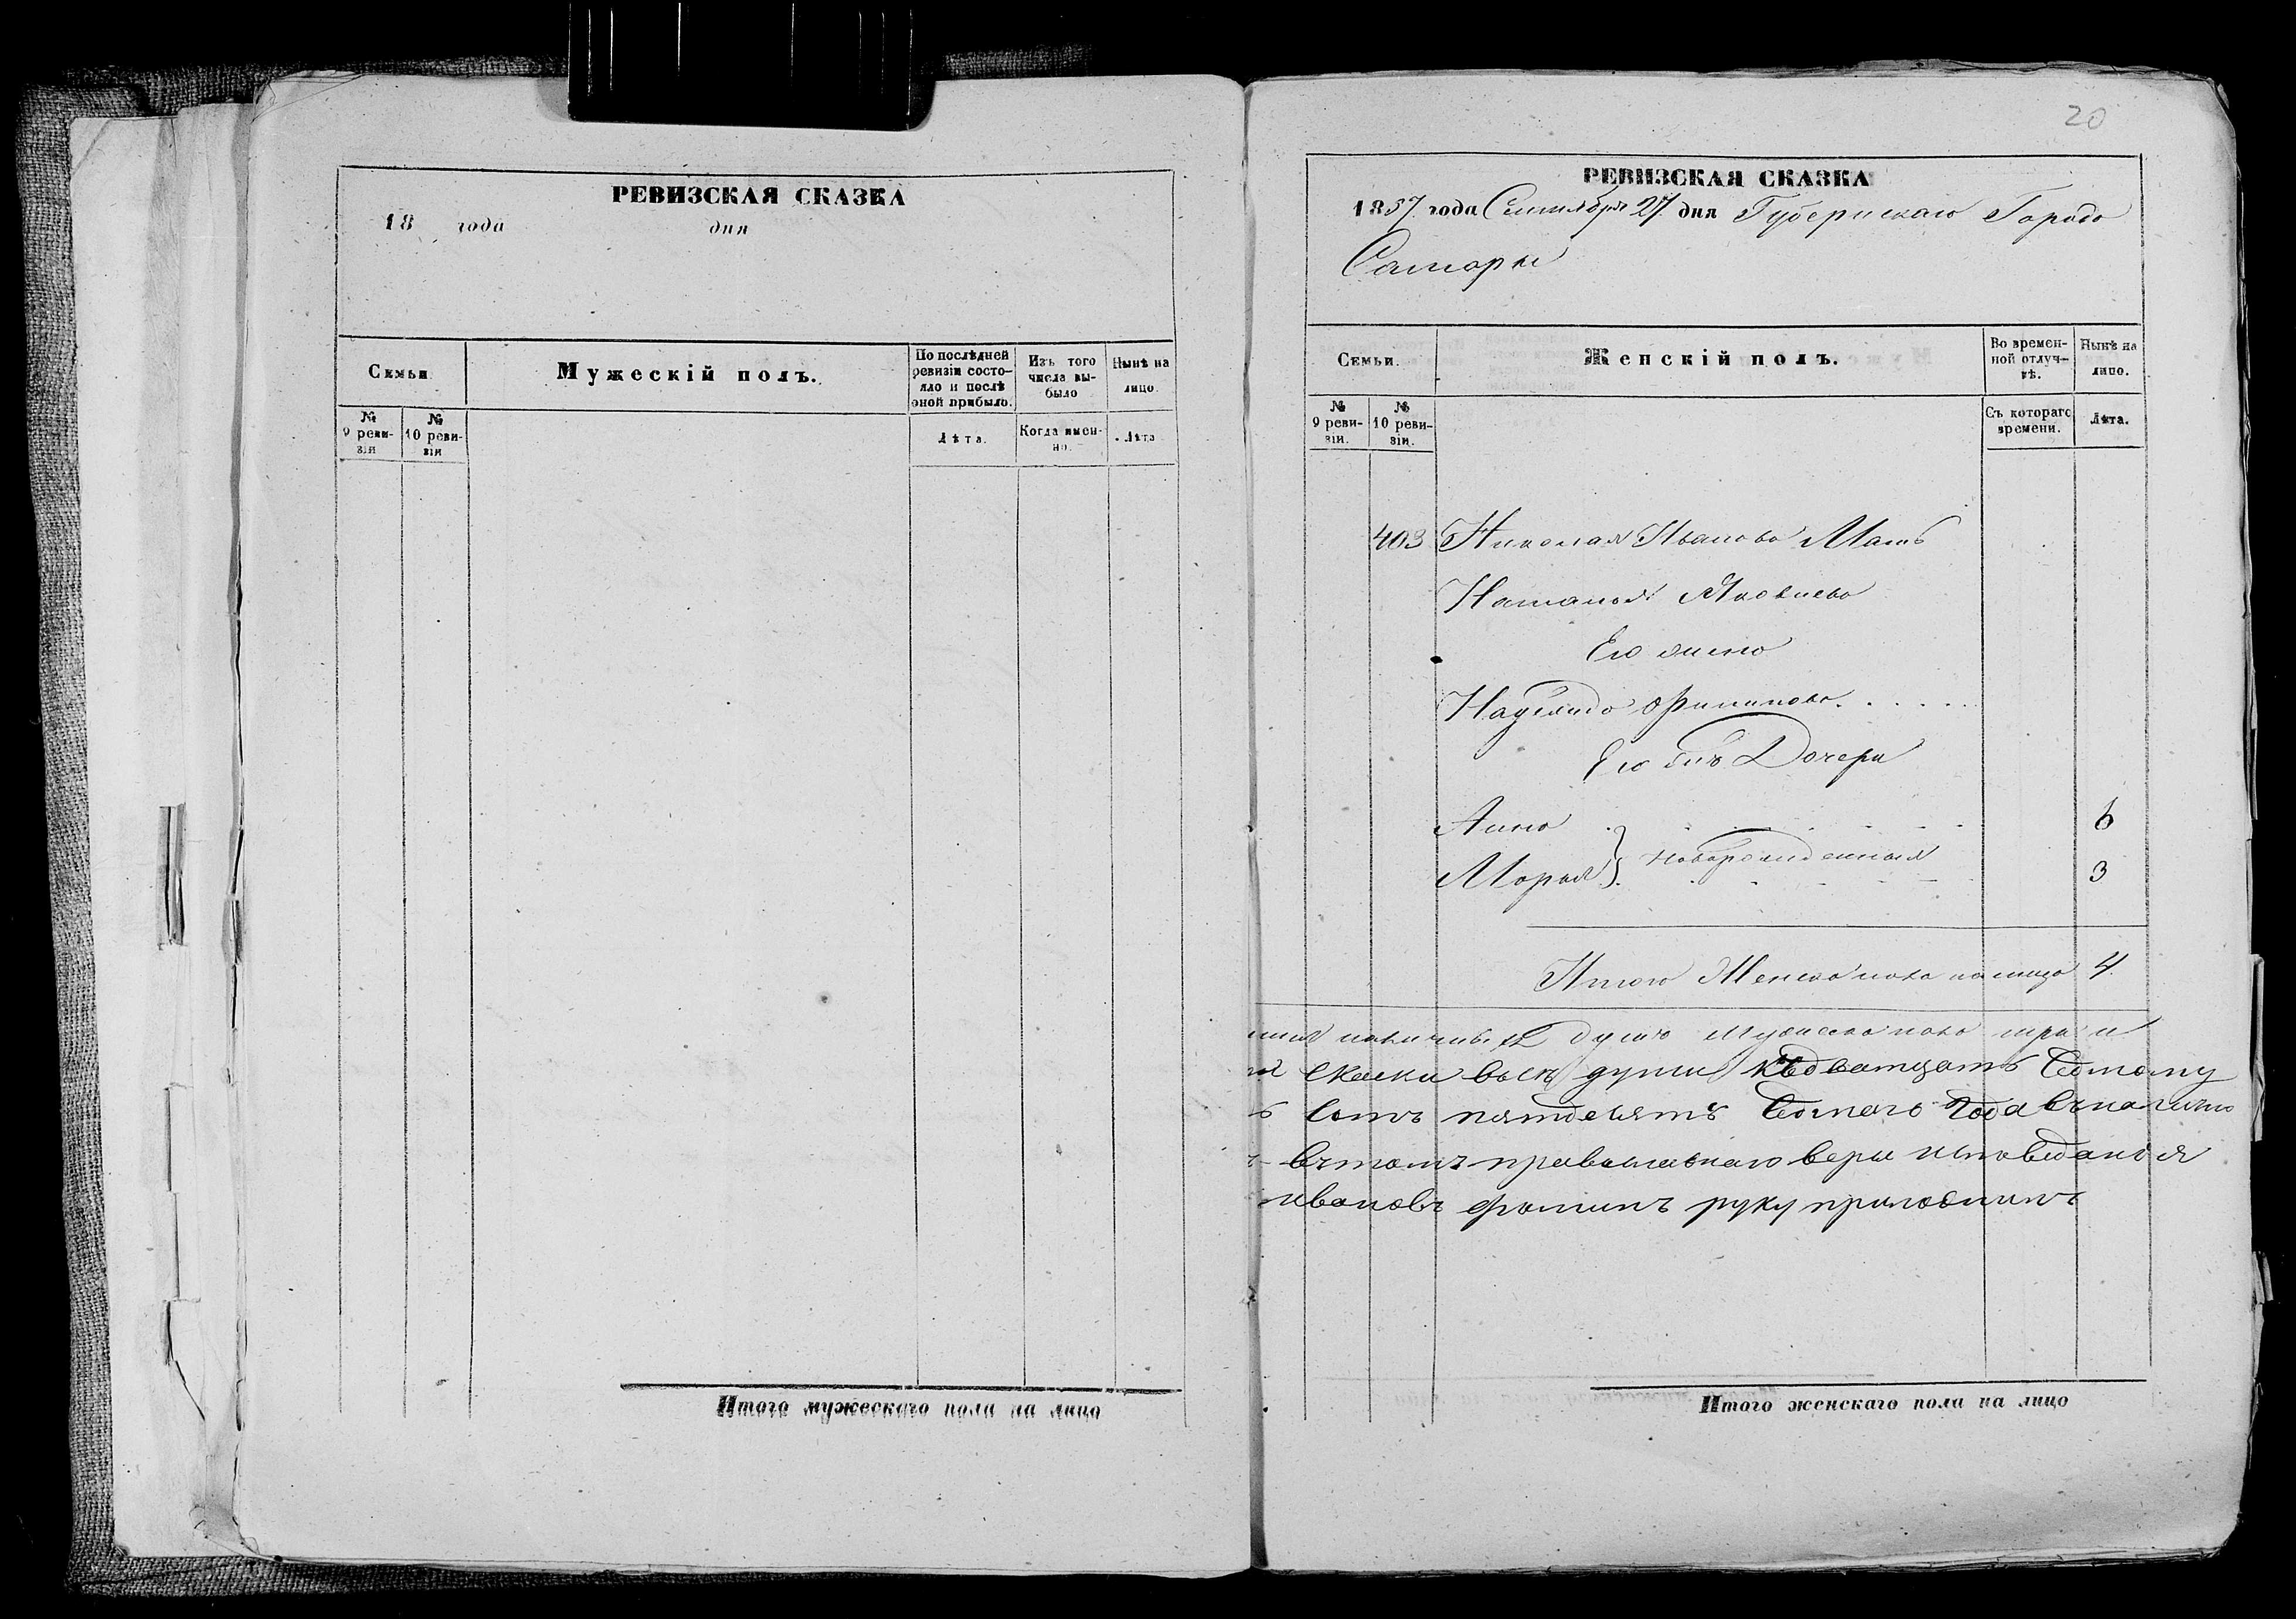 РЕВИЗСКАЯ СКАЗКА
18 года дня
Семьи
Мужескій полъ.
По послѣдней ревизіи состояло и послѣ оной прибыло.
Изъ того числа выбыло
Нынѣ на лицо.
№ 9 ревизіи
№ 10 ревизіи
Лѣта.
Когда именно.
Лѣта
Итого мужескаго пола на лицо
20
РЕВИЗСКАЯ СКАЗКА
1857 года Сентября 27 дня Губернскаго Города
Самары
Семьи.
Женскій полъ.
Во временной отлучкѣ.
Нынѣ на лицо.
№ 9 ревизіи.
№ 10 ревизіи.
Съ котораго времени.
Лѣта.
403 Николая Иванова Мать
Наталья Яковлева
Его жена
Надежда Филипова
Его Дочери
Анна 6
Марья } новорожденныя 3
Итого Женска пола на лицо 4
наличныхъ душъ Мужеска пола три и
скаски всехъ души къ дватцать седмому
сотъ пятдесятъ седмаго года
вътомъ православнаго веры исповеданія
ивановъ фоминъ руку приложилъ
Итого женскаго пола на лицо